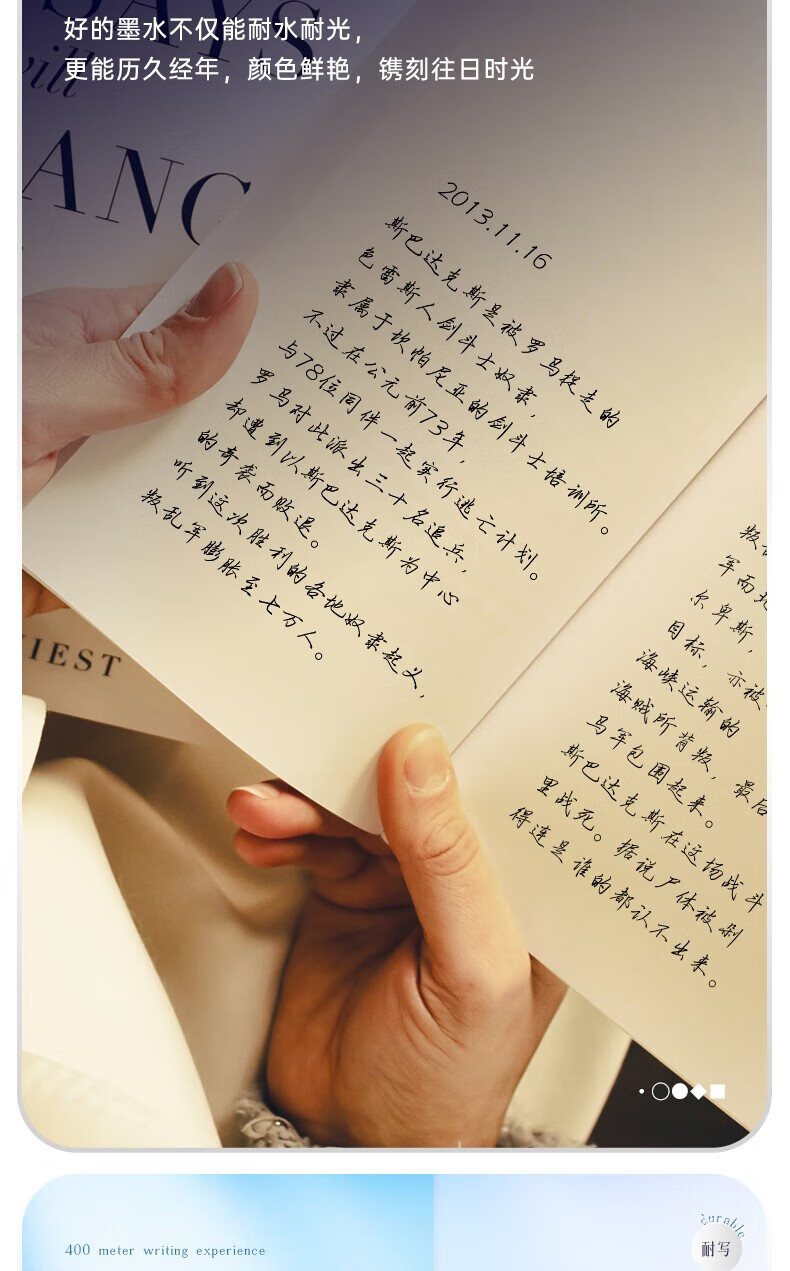 好的墨水不仅能耐水耐光，
更能历久经年，颜色鲜艳，镌刻往日时光
SAYS
will
ANC
IEST
2013.11.16
斯巴达克斯是被罗马捉走的
色雷斯人剑斗士奴隶，
隶属于坎帕尼亚的剑斗士培训所。
不过在公元前73年，
与78位同伴一起实行逃亡计划。
罗马对此派出三十名追兵，
却遭到以斯巴达克斯为中心
的奇袭而败退。
听到这次胜利的各地奴隶起义，
叛乱军膨胀至七万人。
叛
军而北
尔卑斯，
目标，亦被
海峡运输的
海贼所背叛，最后
马军包围起来。
斯巴达克斯在这场战斗
里战死。据说尸体被剁
得连是谁的都认不出来。
400 meter writing experience
durable
耐写